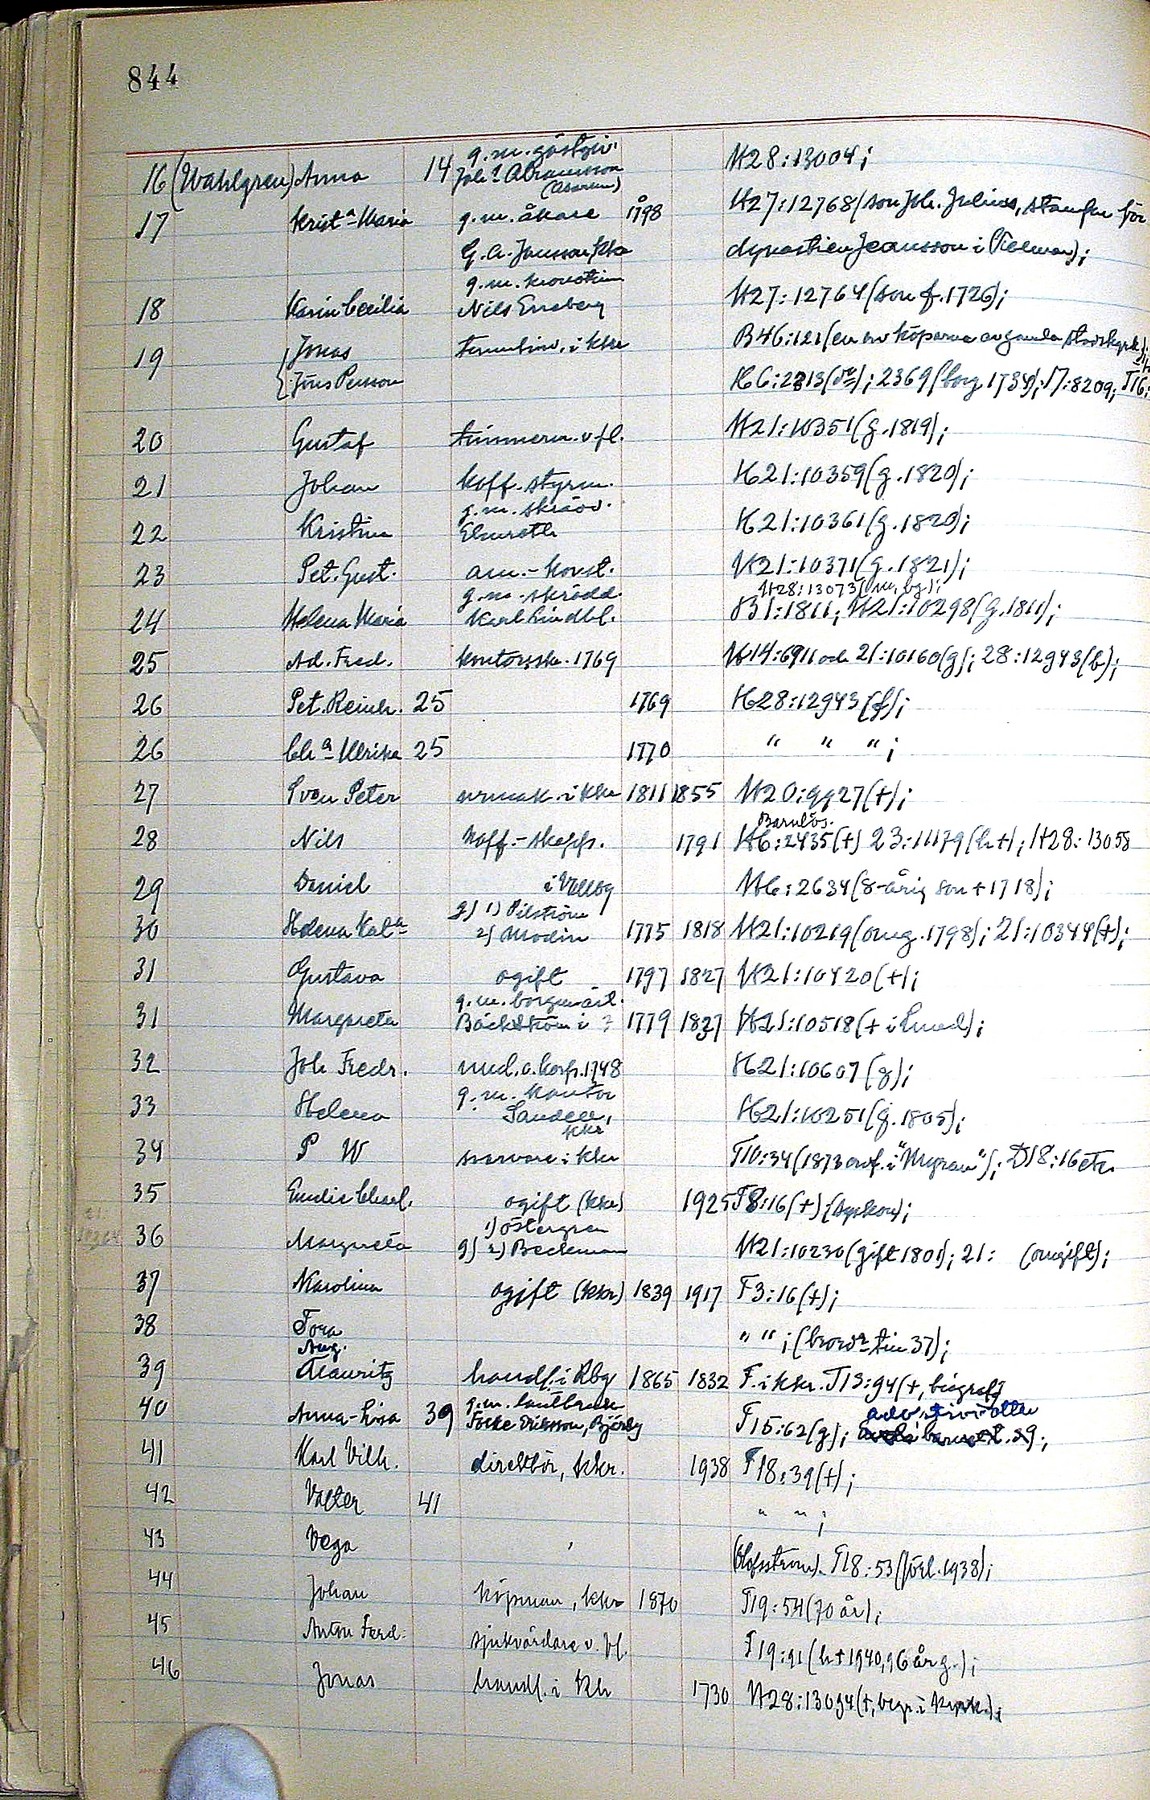 844
16 (Wahlgren) Anna 14 g.m. gästgiv. Joh:s Abramsson H28:13004;
17 Krist:a Maria g.m. åkare 1798 H27:12768 (son Joh. Julius, stamfar för
G.A. Jonsson kkr dynastien Jeansson i );
18 Karin Cecilia g.m. Nils Eneberg H27:12764 (son f. 1726);
19 Jonas i kkr B46:121 (en av köparna av gamla
Jöns Persson H6:2213 ; 2369 (borg 1734); 17:8209; T16:
20 Gustaf timmerm. v fl. H21:10351 (g. 1819);
21 Johan koff. styrm. H21:10359 (g. 1820);
22 Kristina g.m. skräddm. Elmroth H21:10361 (g. 1820);
23 Pet. Gust. am.-konst. H21:10371 (g. 1821);
H28:13073
24 Helena Maria g.m. skrädd. Karl Lindbl. B1:1811; H21:10298 (g. 1811);
25 Ad. Fred. kontorsskr. 1769 H14:6911 och 21:10160 (g); 28:12943 (b);
26 Pet. Reinh. 25 1769 H28:12943 (f);
26 Ch:a Ulrika 25 1770 " " ";
27 Sven Peter urmak. i kkr 1811 1855 H20:9927 (+);
Barnlös.
28 Nils koff.-skepp. 1791 H6:2435 (+) 23:11179 (h +); H28:13058
29 Daniel i Vållby H6:2634 (8-årig son + 1718);
30 Helena Kat:a g) 1) Pilström 2) Modin 1775 1818 H21:10219 (omg. 1798); 21:10344 (+);
31 Gustava ogift 1797 1827 H21:10420 (+);
31 Margareta g.m. borgmäst. Bäckström i ? 1779 1827 H21:10518 (+ i Lund);
32 Joh Fredr. und.o.korp. 1748 H21:10607 (g);
33 Helena g.m. kantor Sandell, kkr H21:10251 (g. 1805);
34 P W svarvare i kkr T10:34 (1873 omf. i "Myran"); D18:16 etc
35 Emelie Charl. ogift (kkr) 1925 T8:16 (+) (syskon);
36 Margareta g) 1) Östergren 2) Beckman H21:10230 (gift 1801); 21: (omgift);
37 Karolina ogift (kkr) 1839 1917 F3:16 (+);
38 Tora " "; (brord:r till 37);
39 Aug. Mauritz handl. i Rby 1865 1832 F. i kkr. T13:94 (+, biografi)
40 Anna-Lisa 39 g.m. lantbrukare Folke Eriksson, Björby T15:62 (g);
41 Karl Vilh. direktör, kkr. 1938 T18:39 (+);
42 Valter 41 " ";
43 Vega (Olofsström). T18:53 (förl. 1938);
44 Johan köpman, kkr 1870 T19:54 (70 år);
45 Anton Ferd. sjukvårdare v. fl. T19:91 (h + 1940, 96 år g.);
46 Jonas handl. i Kkr 1730 H28:13094 (+, begr. i kyrk.);